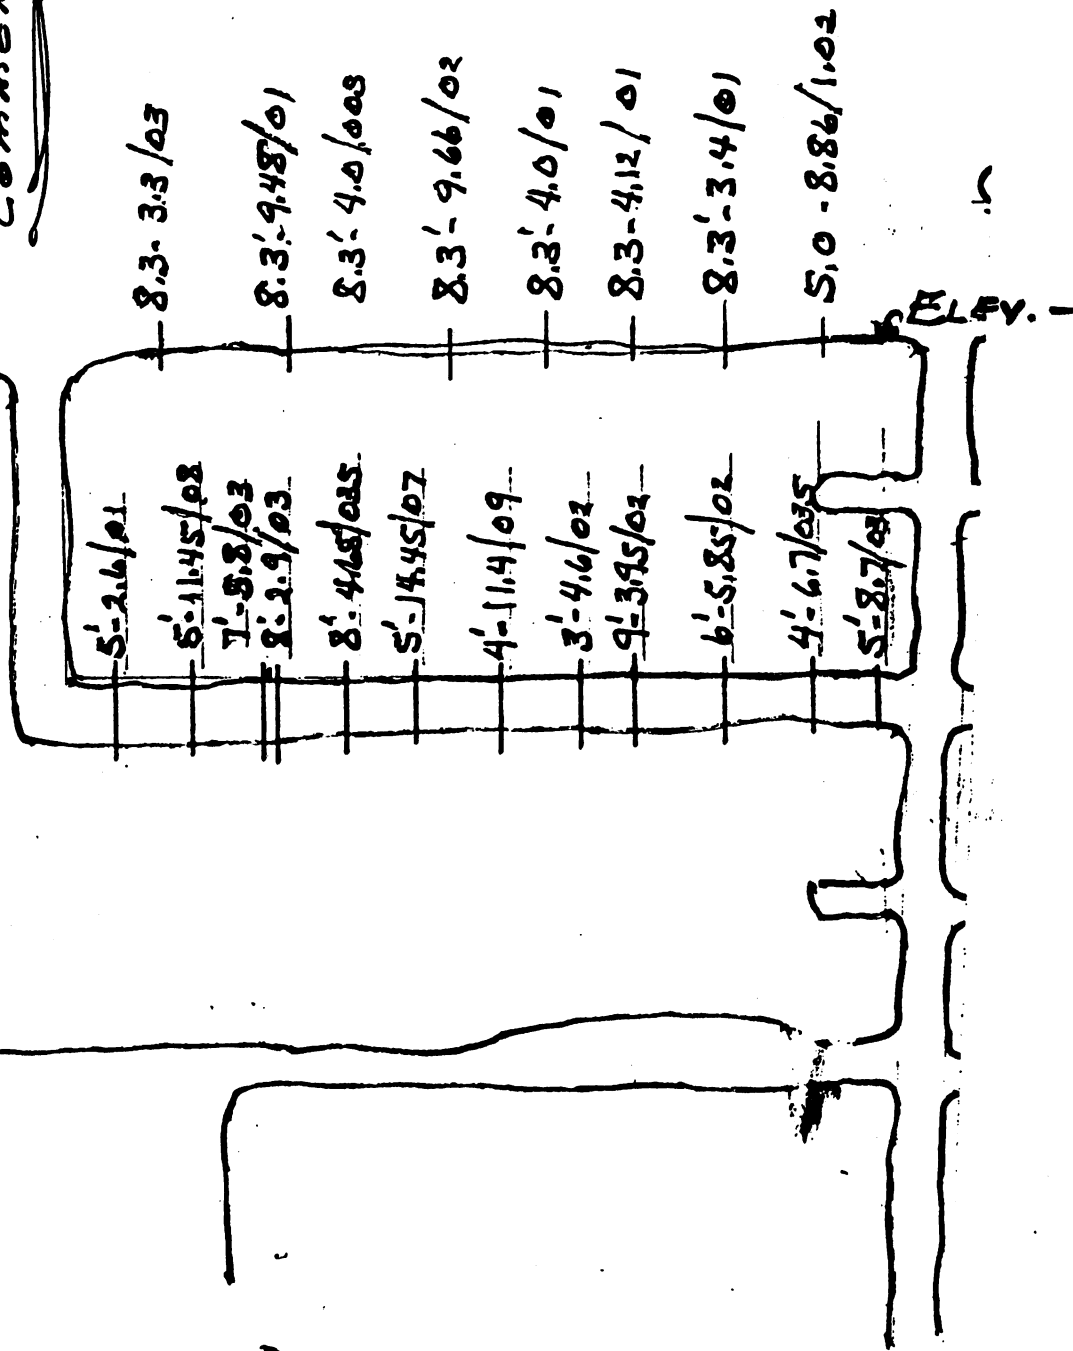 8.3-3.3/03
8.3'-9.48/01
8.3'-4.0/003
8.3'-9.66/02
8.3'-4.0/01
8.3-4.12/01
8.3'-3.4/01
5.0-8.86/1.02
ELEV. -
5'-2.6/.01
5'-11.45/.08
7'-8.8/03
8'-2.9/03
8'-4.68/035
5'-14.45/07
4'-11.4/09
3'-4.6/02
9'-3.95/02
6'-5.85/02
4'-6.7/035
5'-8.7/03